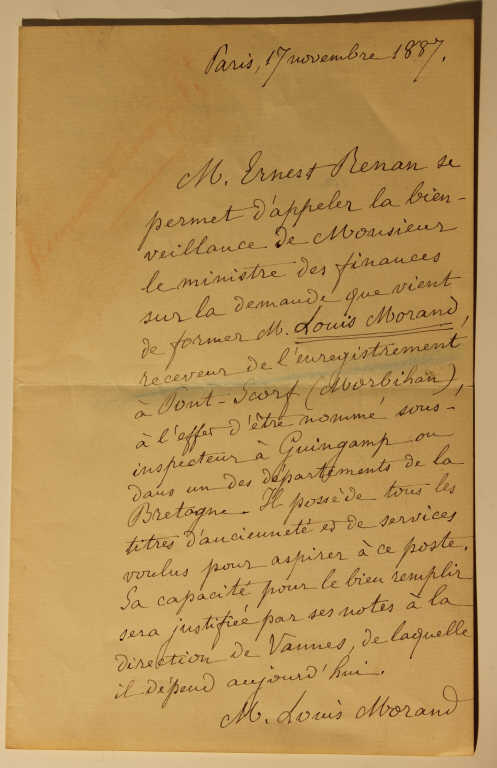 Paris, 17 novembre 1887.
M. Ernest Renan se
permet d'appeler la bien-
veillance de Monsieur
le ministre des finances
sur la demande que vient
de former M. Louis Morand,
receveur de l'enregistrement
à Pont-Scorf (Morbihan),
à l'effet d'être nommé sous-
inspecteur à Guingamp ou
dans un des départements de la
Bretagne. Il possède tous les
titres d'ancienneté et de services
voulus pour aspirer à ce poste.
Sa capacité pour le bien remplir
sera justifiée par ses notes à la
direction de Vannes, de laquelle
il dépend aujourd'hui.
M. Louis Morand